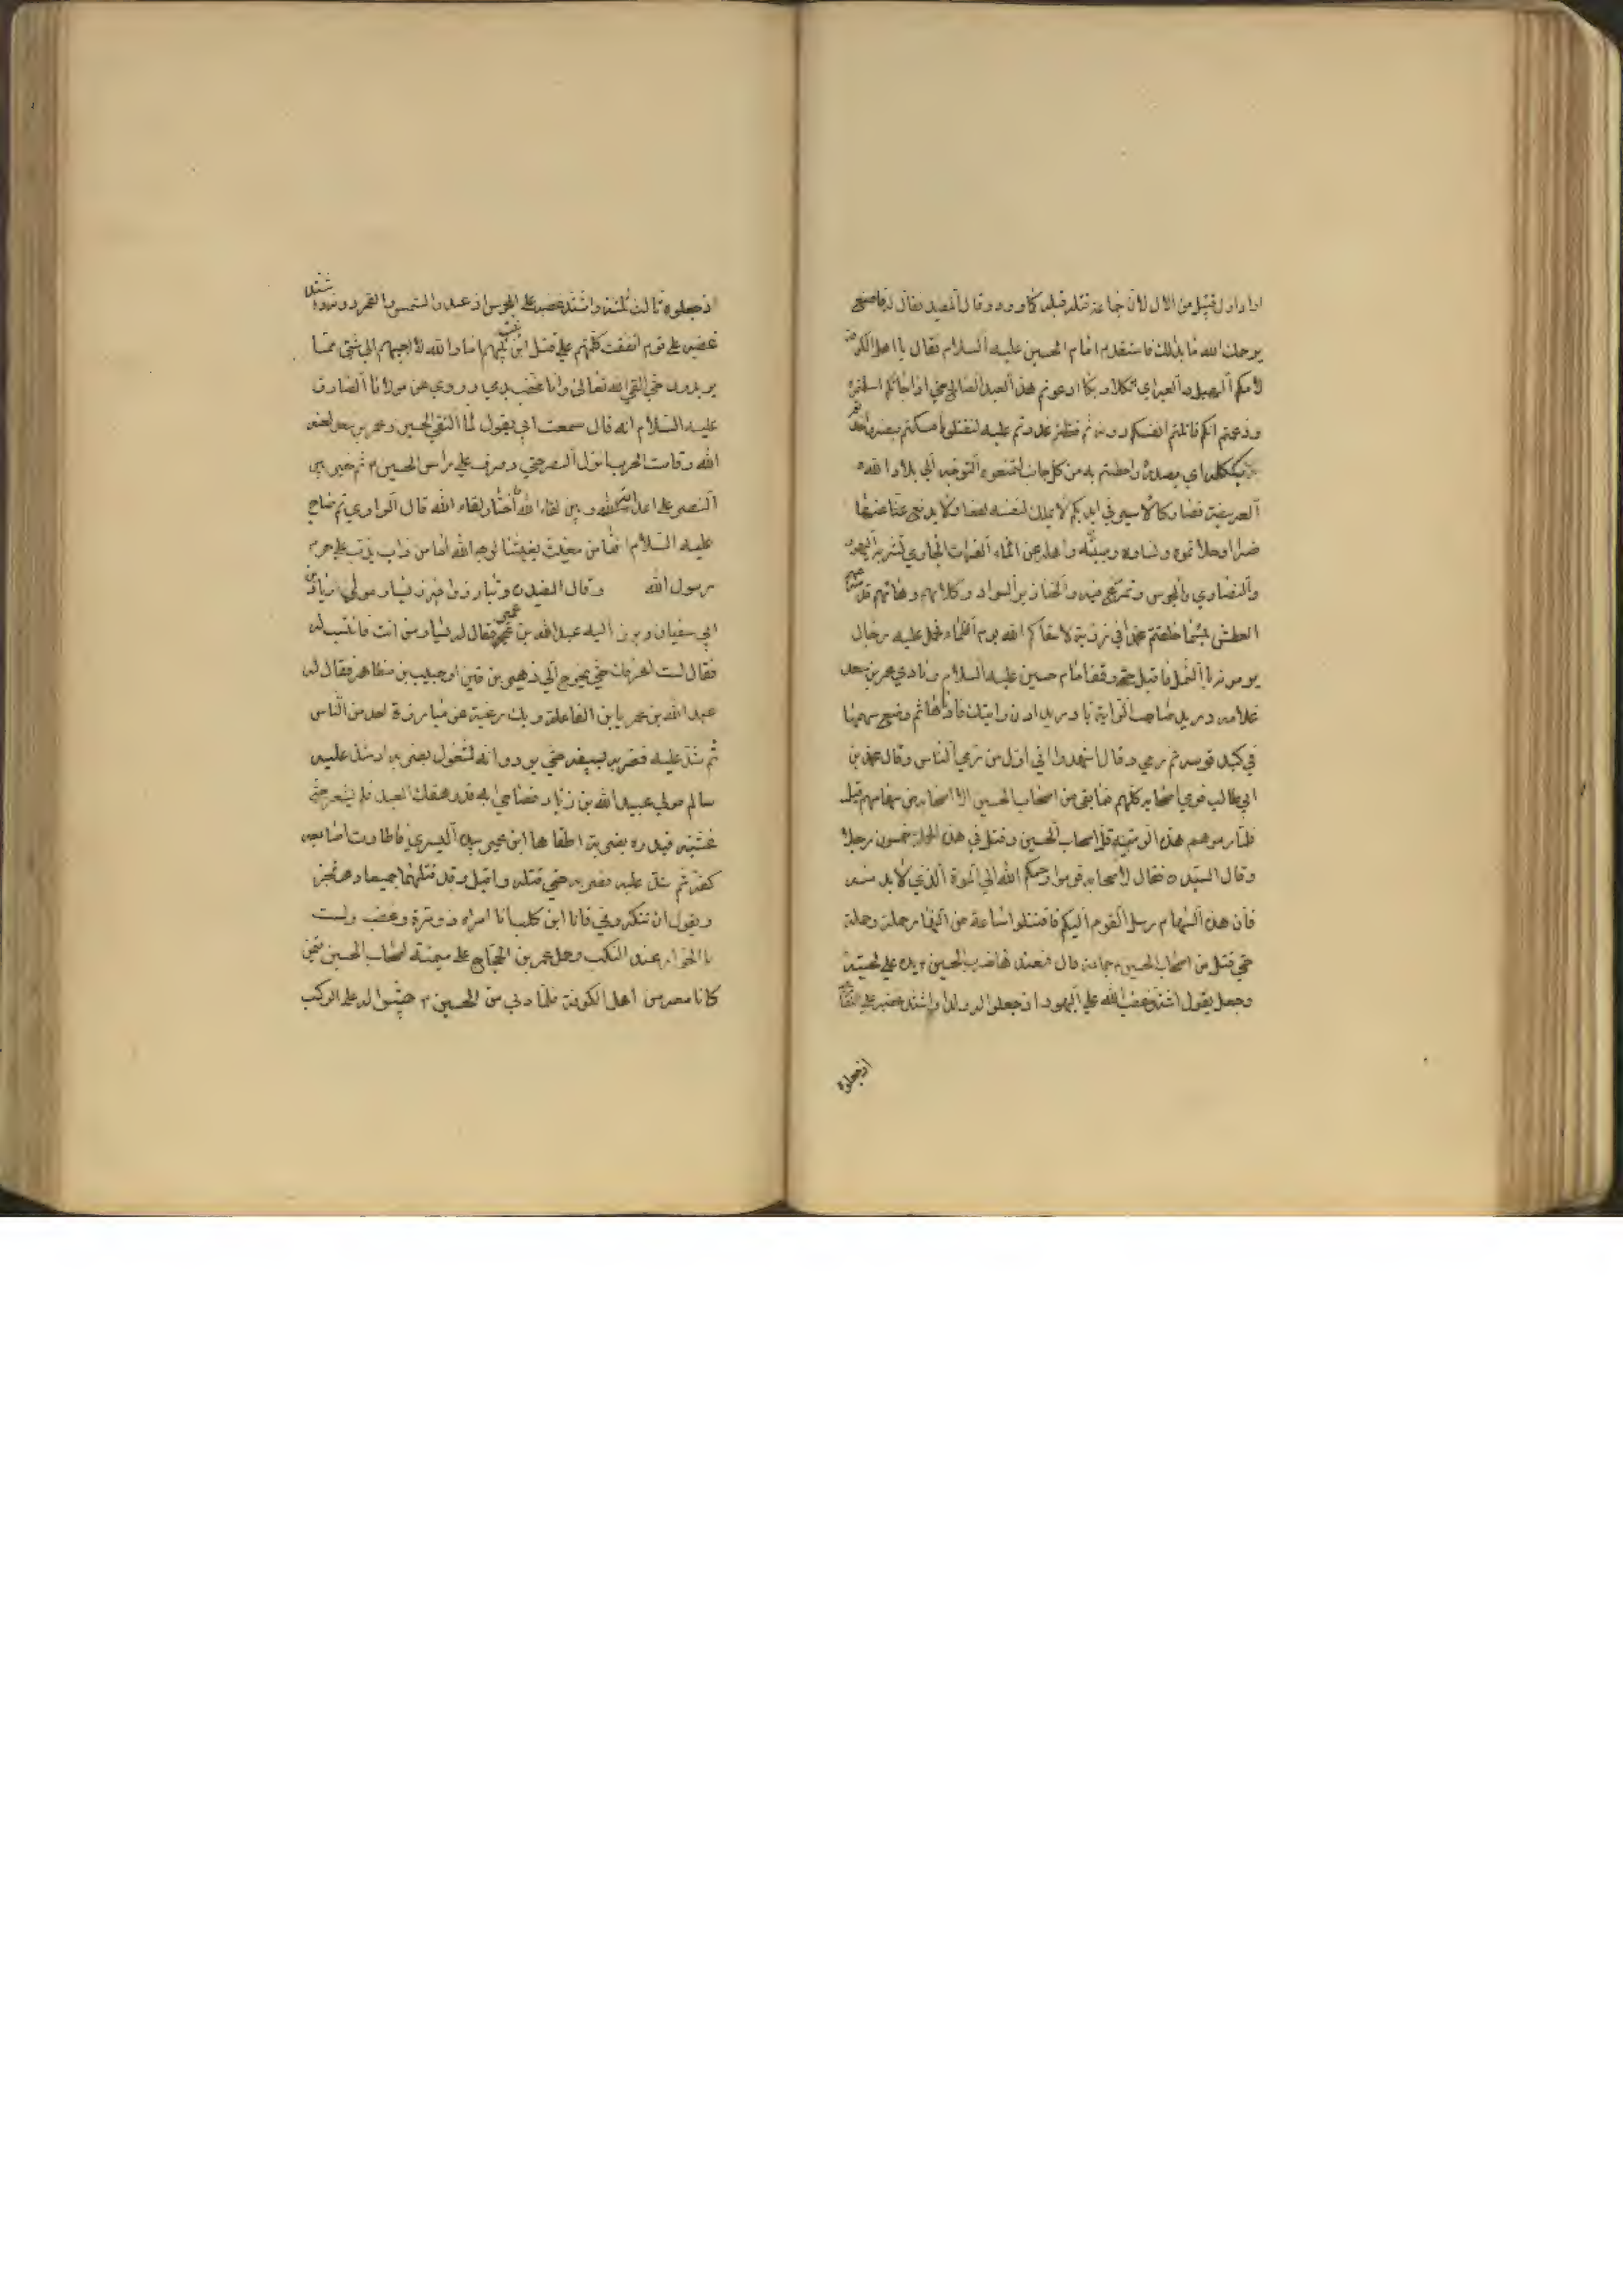 اراد اول قتيل من الاول لان جماعة قتلوا قبله كما ورد وقال المفيد فقال له فاصنع
يرحمك الله ما بدا لك فاستقدم امام الحسين عليه السلام فقال يا اهل الكوفة
لامكم الهبل والعبر ادعوتم هذا العبد الصالح حتى اذا جائكم اسلمتموه
وزعمتم انكم قاتلتم انفسكم دونه ثم عدوتم عليه لتقتلوه امسكتم بنفسه واخذتم
بكلكله واحطتم به من كل جانب لتمنعوه التوجه الى بلاد الله
العريضة فصار كالاسير في ايديكم لا يملك لنفسه نفعا ولا يدفع عنها
ضرا وحلاتموه ونساوه وصبيته واهله عن الماء الفرات الجاري تشربه اليهود
والنصارى والمجوس وتمرغ فيه والخنازير السواد وكلابهم وهاهم قد
العطش بئسما خلفتم محمدا في ذريته لاسقاكم الله يوم الظماء فحمل عليه رجال
يرمونه بالنبل فاقبل حتى وقف امام حسين عليه السلام ونادى عمر بن سعد
غلامه دريد صاحب الراية يا دريد ادن رايتك فادناها ثم وضع سهمه
في كبد قوسه ثم رمى وقال اشهدوا اني اول من رمى الناس وقال محمد بن
ابي طالب فرمى اصحابه كلهم فما بقى من اصحاب الحسين الا اصابه من سهامهم قيل
فلما رموهم هذه الرمية قل اصحاب الحسين وقتل في هذه الحملة خمسون رجلا
وقال السيد ه فقال لاصحابه قوموا رحمكم الله الى الموت الذي لابد منه
فان هذه السهام رسل القوم اليكم فاقتتلوا ساعة من النهار حملة وحملة
حتى قتل من اصحاب الحسين م جماعة قال فعندها ضرب الحسين م يده على لحيته
وجعل يقول اشتد غضب الله على اليهود اذ جعلوا له ولدا واشتد غضبه على النصارى
اذ جعلوه
اذ جعلوه ثالث ثلثة واشتد غضبه على المجوس اذ عبدوا الشمس والقمر دونه واشتد
غضبه على قوم اتفقت كلمتهم على قتل ابن بنت نبيهم اما والله لا اجيبهم الى شئ مما
يريدون حتى القى الله تعالى وانا مخضب بدمي وروى عن مولانا الصادق
عليه السلام انه قال سمعت ابي يقول لما التقى الحسين وعمر بن سعد لعنه
الله وقامت الحرب انزل النصر حتى رفرف على راس الحسين م ثم خير بين
النصر على اعدائه وبين لقاء الله فاختار لقاء الله قال الراوي ثم صاح
عليه السلام اما من مغيث يغيثنا لوجه الله اما من ذاب يذب عن حرم
رسول الله وقال المفيد ه وتبارزوا فبرز يسار مولى زياد بن
ابي سفيان وبرز اليه عبد الله بن عمير فقال له يسار من انت فانتسب له
فقال لست اعرفك حتى يخرج الي زهير بن قين او حبيب بن مظاهر فقال له
عبد الله بن عمير يا بن الفاعلة وبك رغبة عن مبارزة احد من الناس
ثم شد عليه فضربه بسيفه حتى برد وانه لمشغول بضربه اذ شد عليه
سالم مولى عبيد الله بن زياد فصاحوا به قد رهقك العبد فلم يشعر حتى
غشيه فبدره بضربة اتقاها ابن عمير بيده اليسرى فاطارت اصابع
كفه ثم شد عليه فضربه حتى قتله واقبل وقد قتلهما جميعا وهو يرتجز
ويقول ان تنكروني فانا ابن كلب انا امرء ذو مرة وعضب ولست
بالخوار عند النكب وحمل عمر بن الحجاج على ميمنة اصحاب الحسين فيمن
كان معه من اهل الكوفة فلما دنى من الحسين م جثوا له على الركب